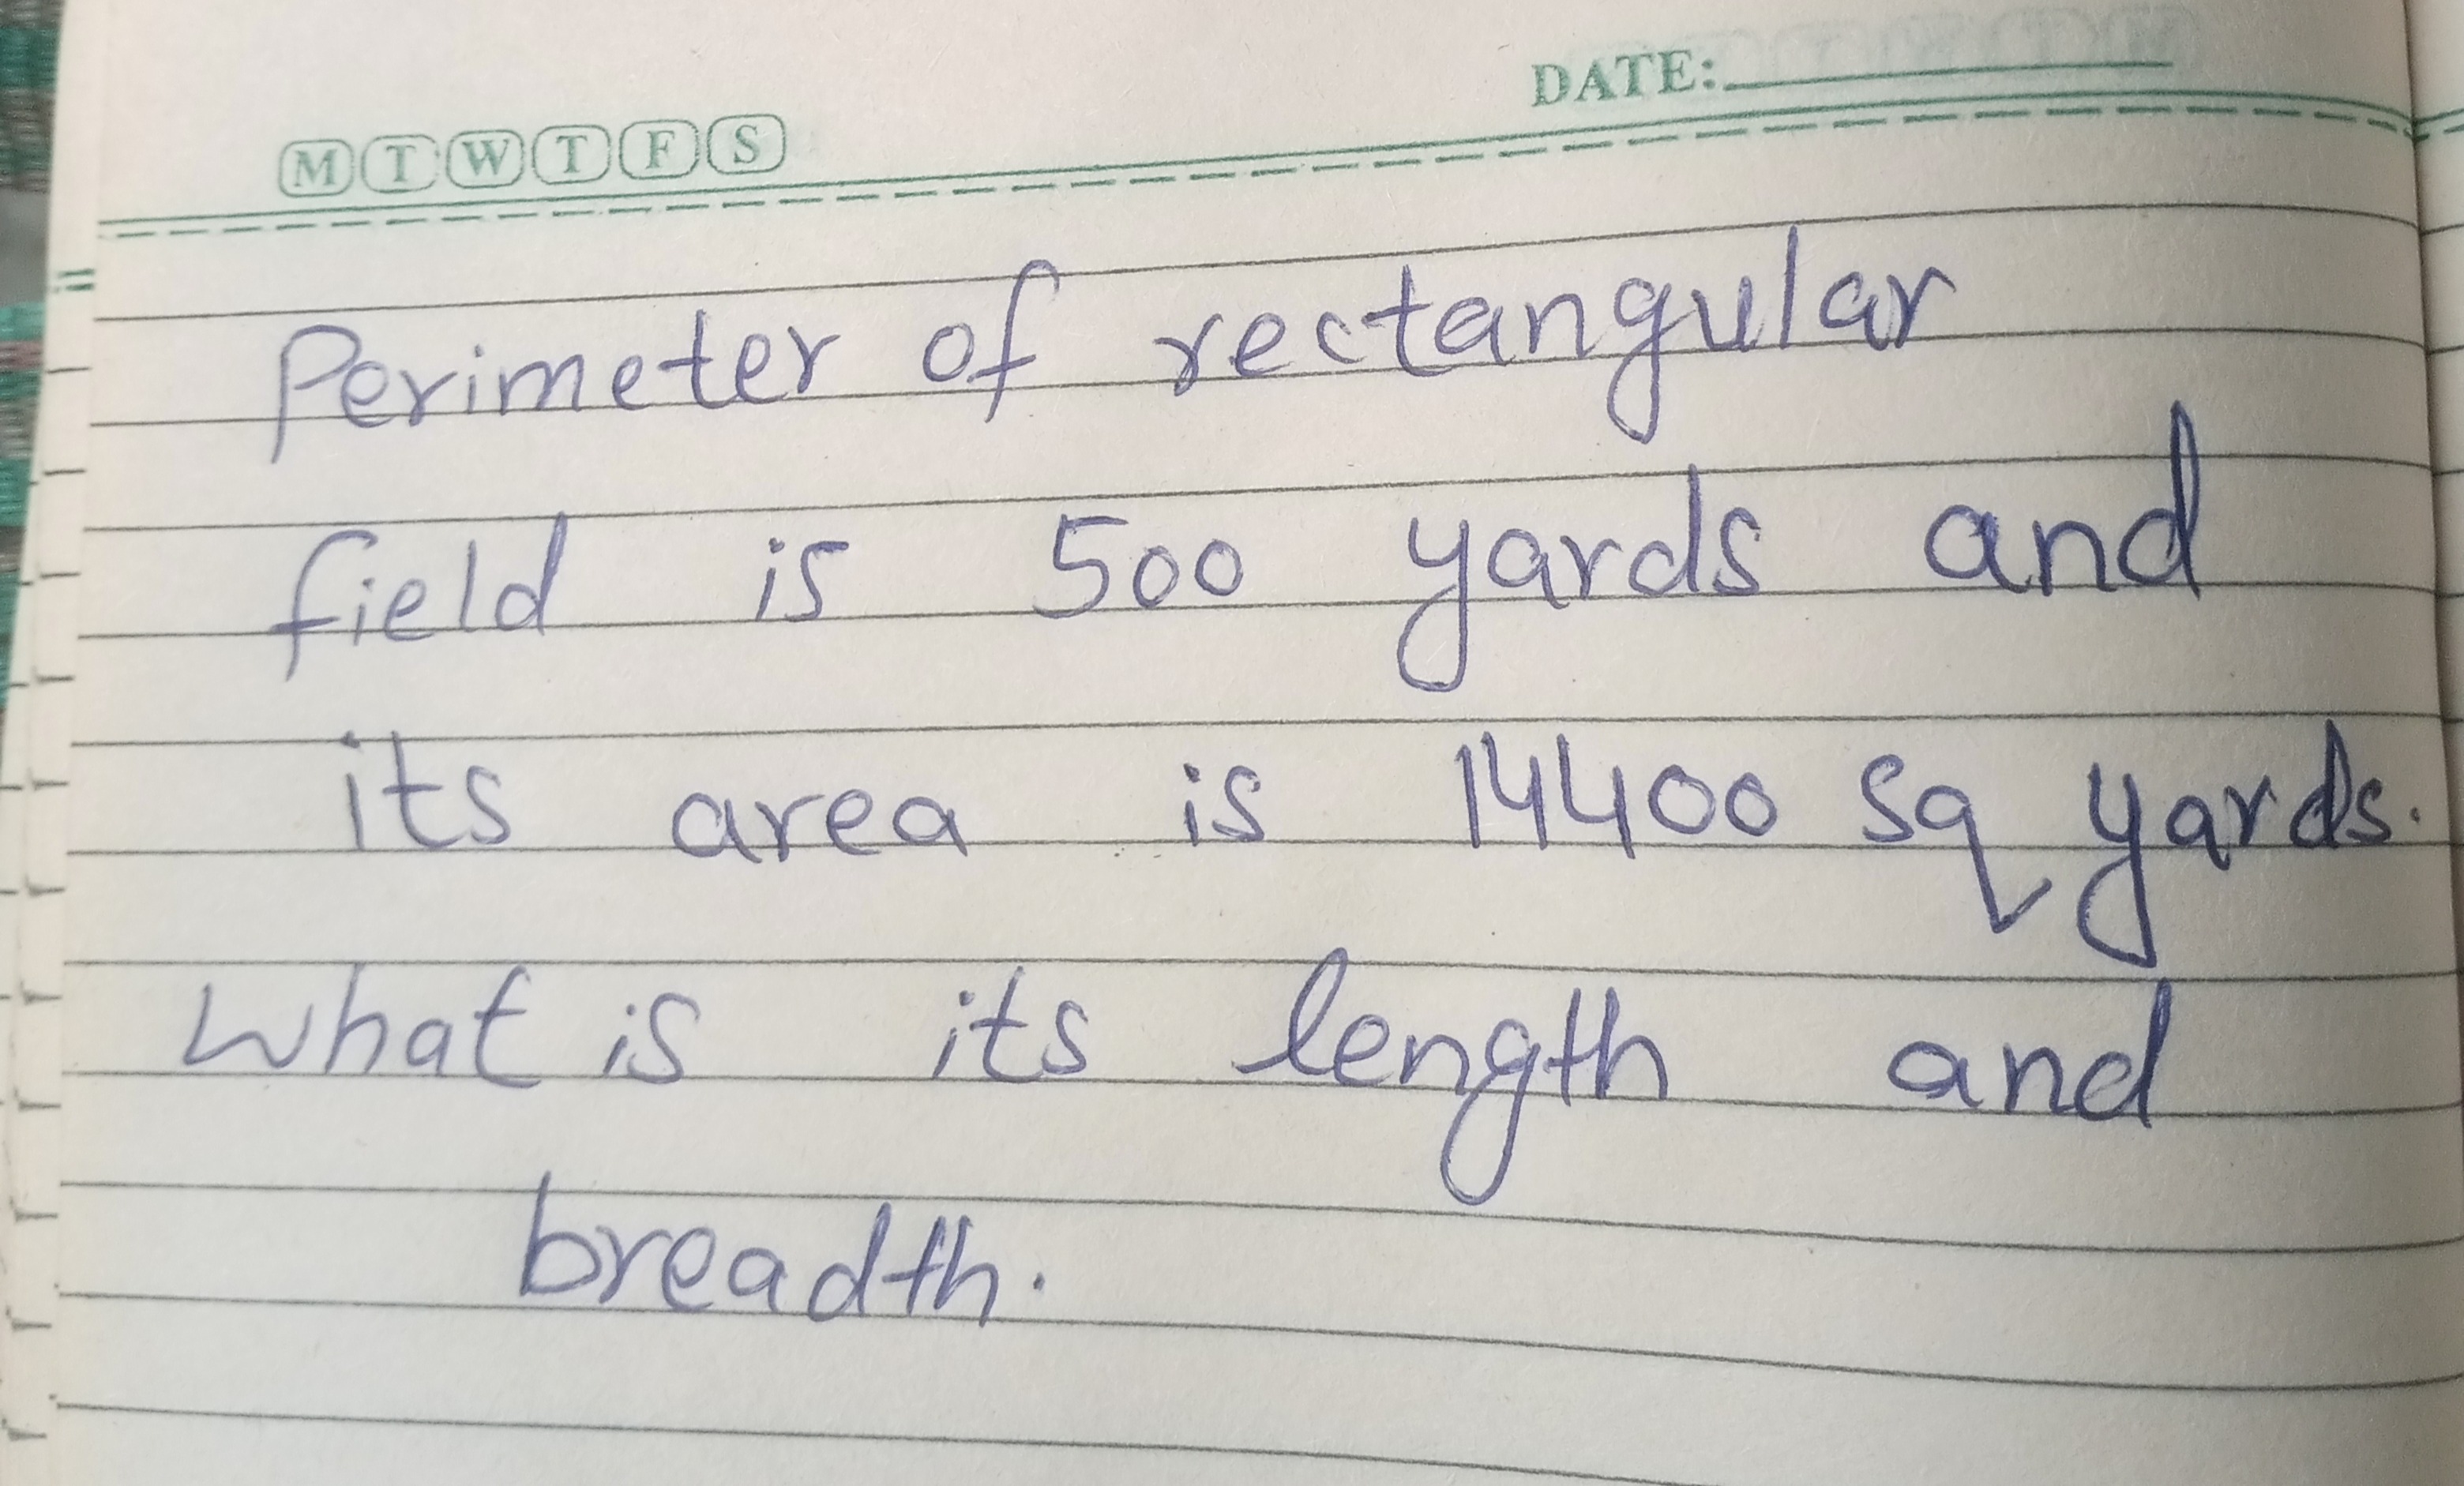 DATE:
M T W T F S
Perimeter of rectangular
field is 500 yards and
its area is 14400 sq yards.
What is its length and
breadth.